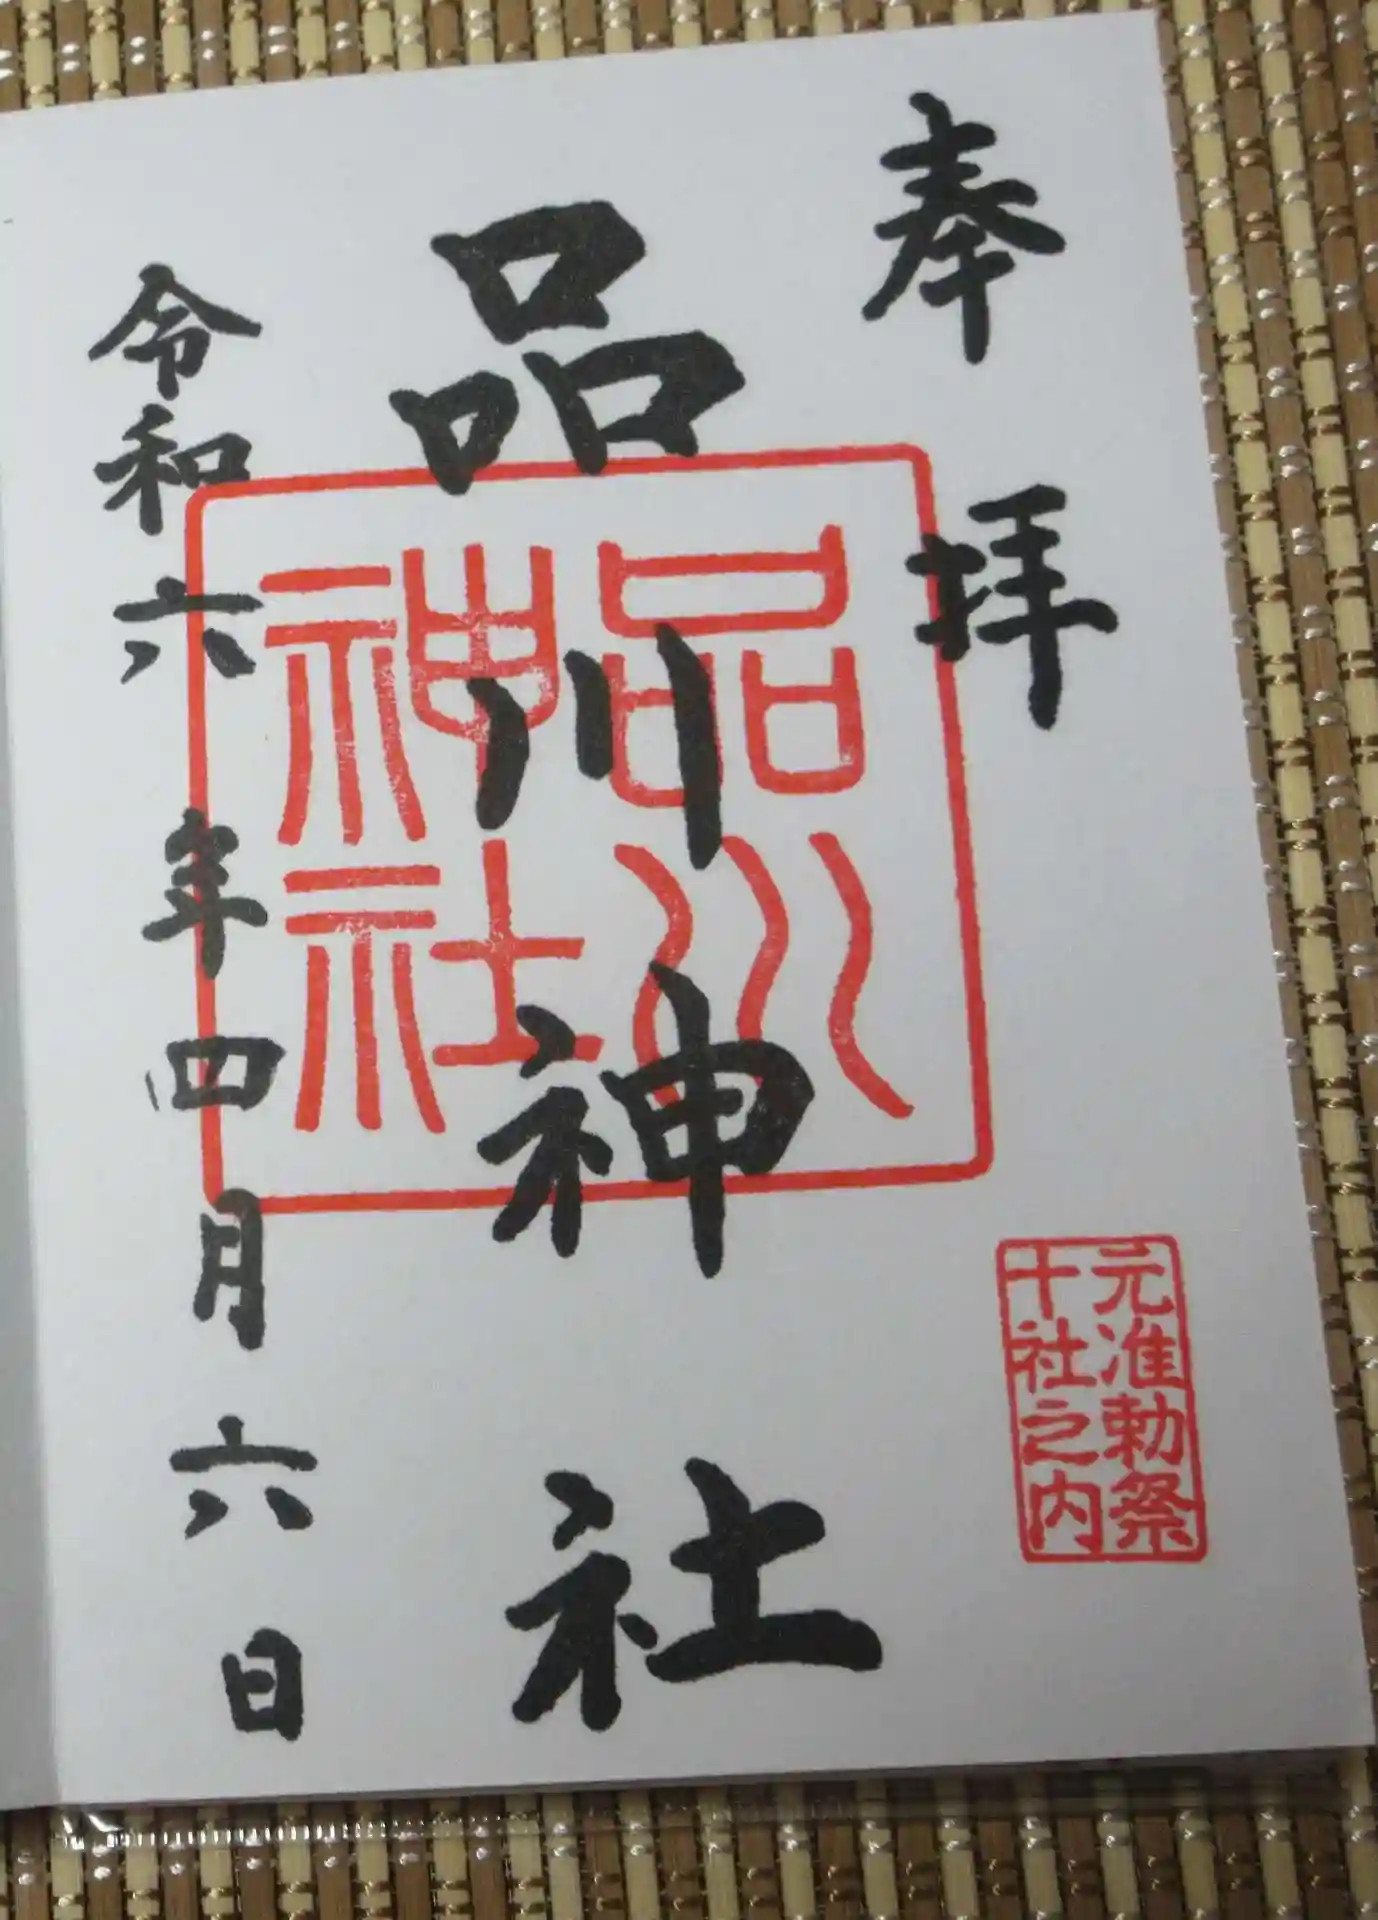 奉拝
元准勅祭
十社之内
品川神社
品川
神社
令和六年四月六日